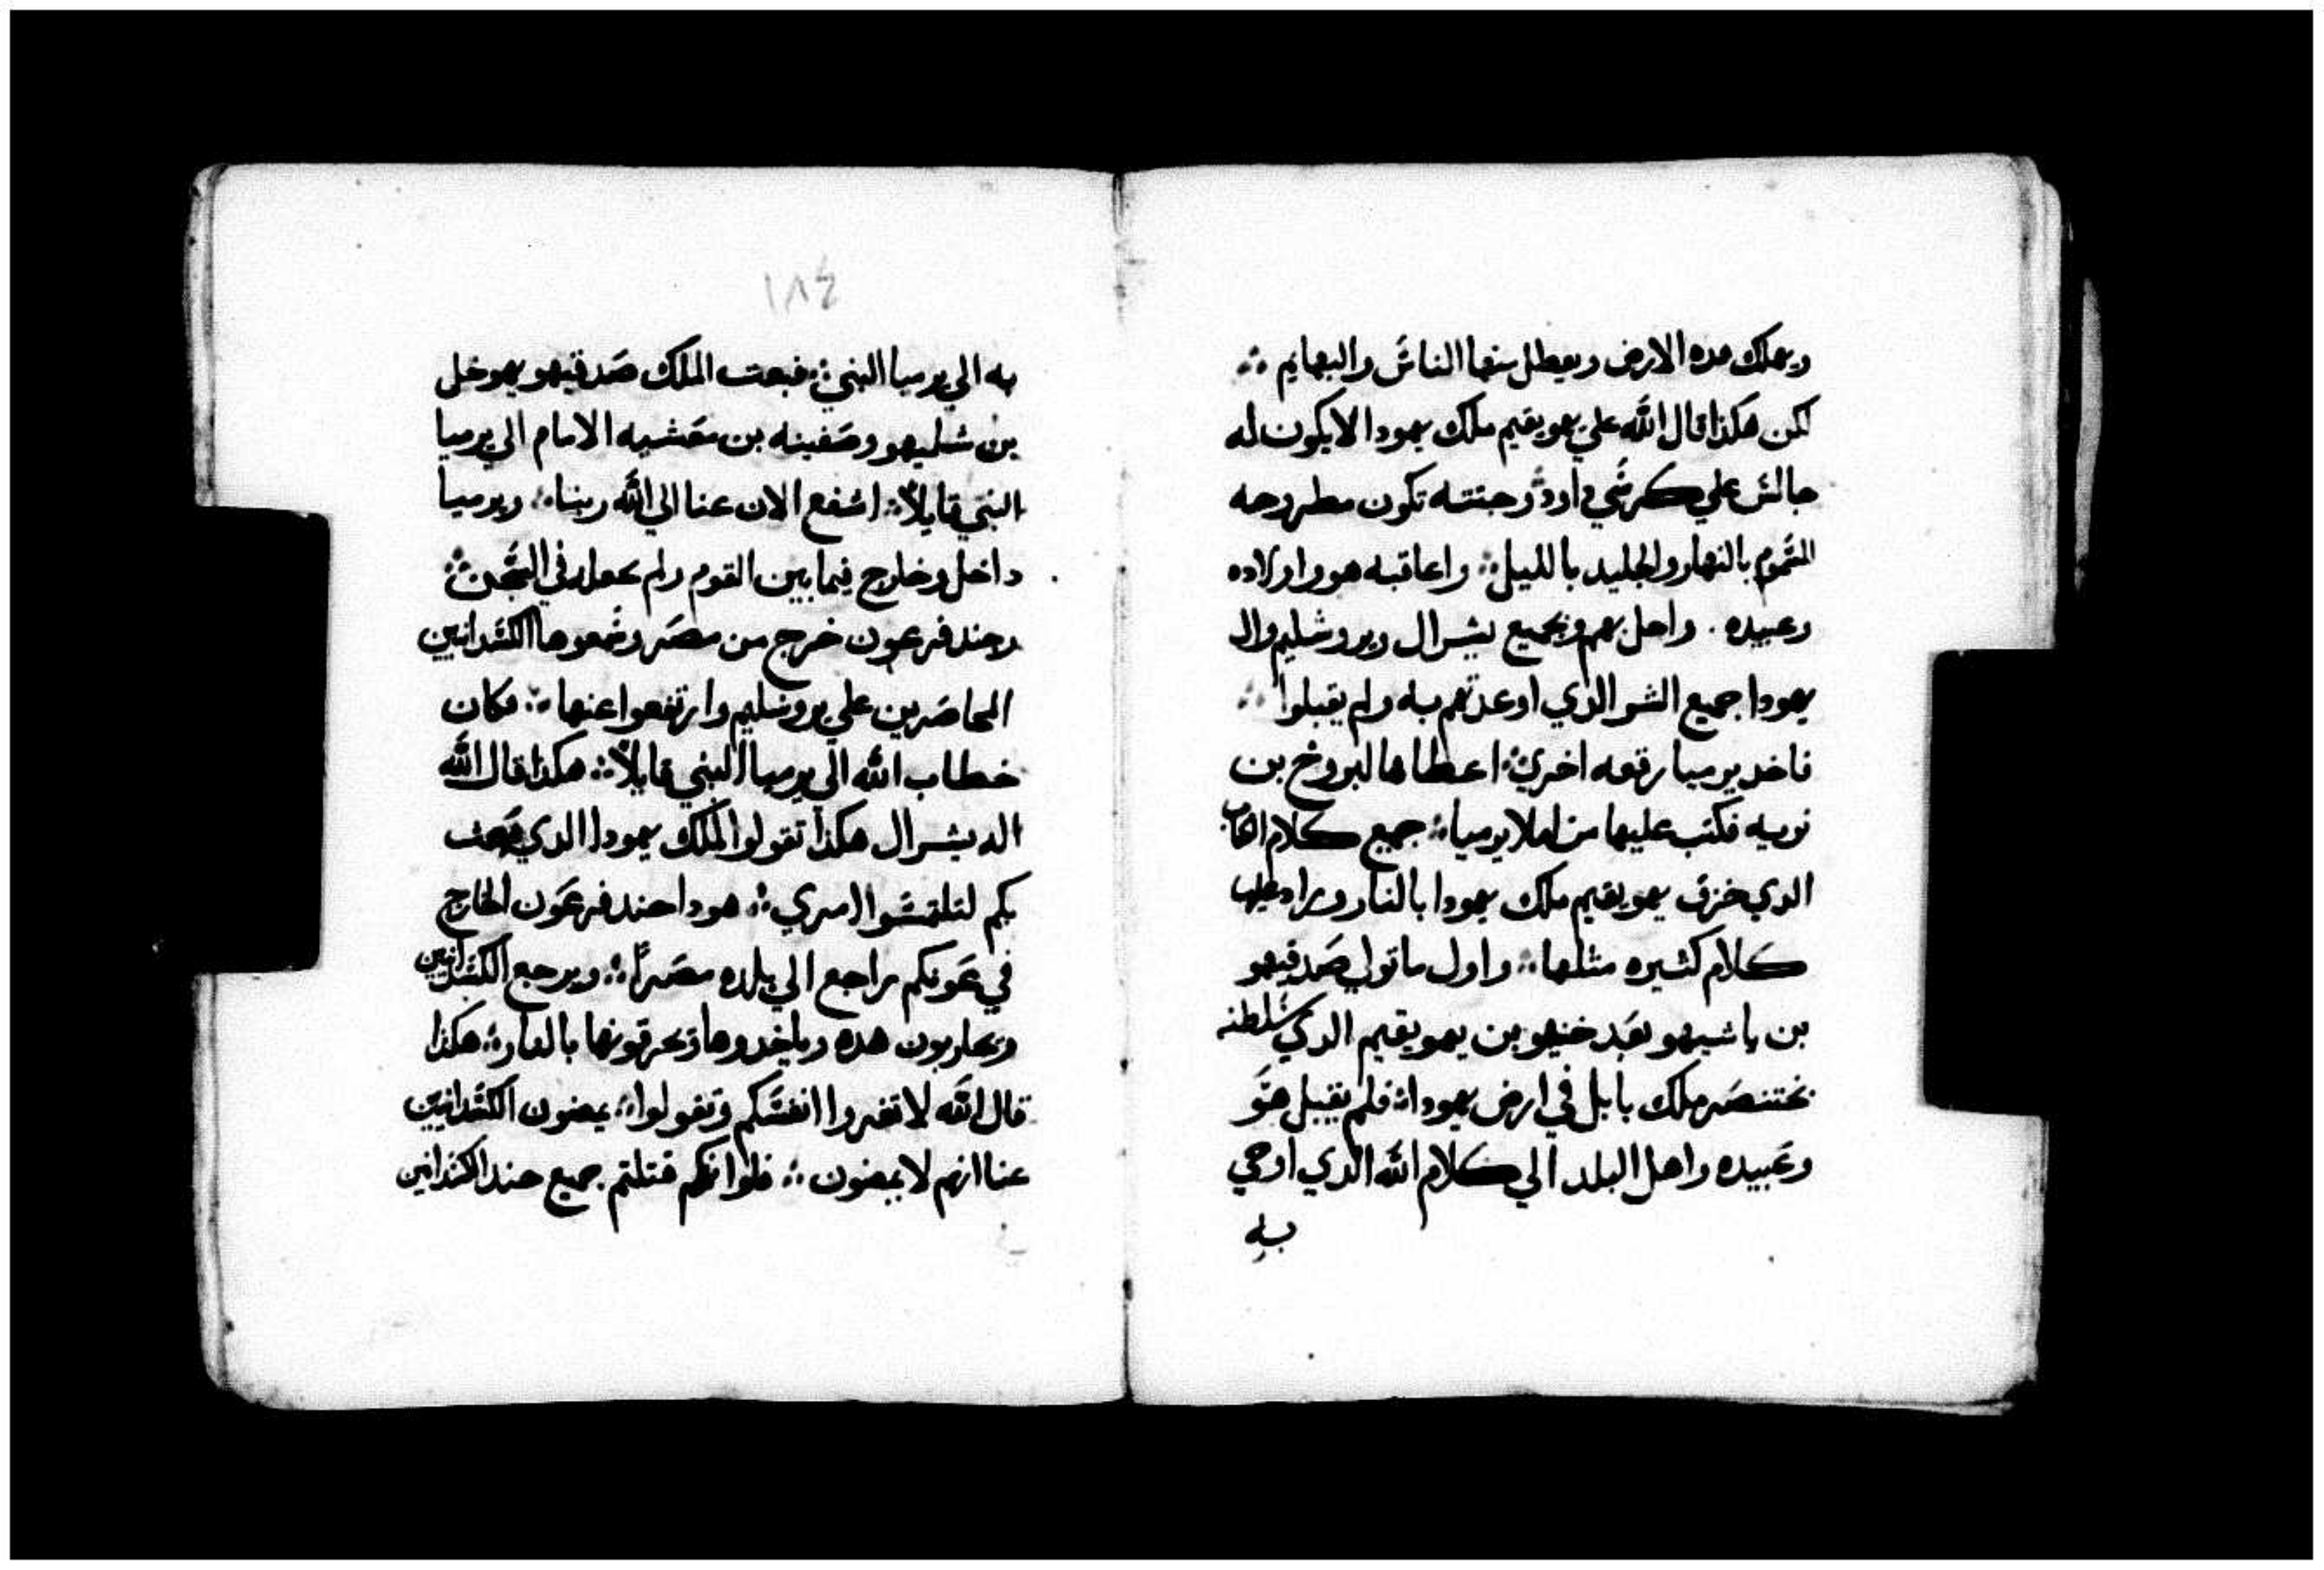 ويهلك هده الارض ويعطل منها الناس والبهايم ∴
لكن هكذا قال الله علي يهويقيم ملك يهودا لا يكون له
جالس علي كرسي داود وجتته تكون مطروحه
للسموم بالنهار والجليد بالليل ∴ واعاقبه هو واولاده
وعبيده . واحل بهم وبجميع يشرال ويروشليم وال
يهودا جميع الشر الدي اوعدتهم به ولم يقبلوا ∴
فاخد يرميا رقعه اخري ∴ اعطاها لبروخ بن
نوريه فكتب عليها من املا يرميا ∴ جميع كلام الكتاب
الدي خزق يهويقيم ملك يهودا بالنار وزاد عليها
كلام كثيره مثلها ∴ واول ما تولي صدقيهو
بن ياشيهو بعد خنيهو بن يهويقيم الدي سلطنه
بختنصر ملك بابل في ارض يهودا ∴ فلم يقبل هو
وعبيده واهل البلد الي كلام الله الدي اوحي
به
١٨٤
به الي يرميا النبي ∴ فبعت الملك صدقيهو يهوخل
بن شليهو وصفينه بن معشيه الامام الي يرميا
النبي قايلاً ∴ اشفع الان عنا الي الله ربنا ∴ ويرميا
داخل وخارج فيما بين القوم ولم يجعله في السجن ∴
وجند فرعون خرج من مصر وسمعوها الكشدانيين
المحاصرين علي يروشليم وارتفعوا عنها ∴ فكان
خطاب الله الي يرميا النبي قايلاً ∴ هكذا قال الله
اله يشرال هكذا تقولوا لملك يهودا الدي بعث
بكم لتلتمسوا امري ∴ هودا جند فرعون الخارج
في عونكم راجع الي بلده مصراً ∴ ويرجع الكشدانيين
ويحاربون هده وياخدوها وتحرقونها بالنار ∴ هكذا
قال الله لا تغروا انفسكم وتقولوا ∴ يمضون الكشدانيين
عنا انهم لا يمضون ∴ فلو انكم قتلتم جميع جند الكشدانيين